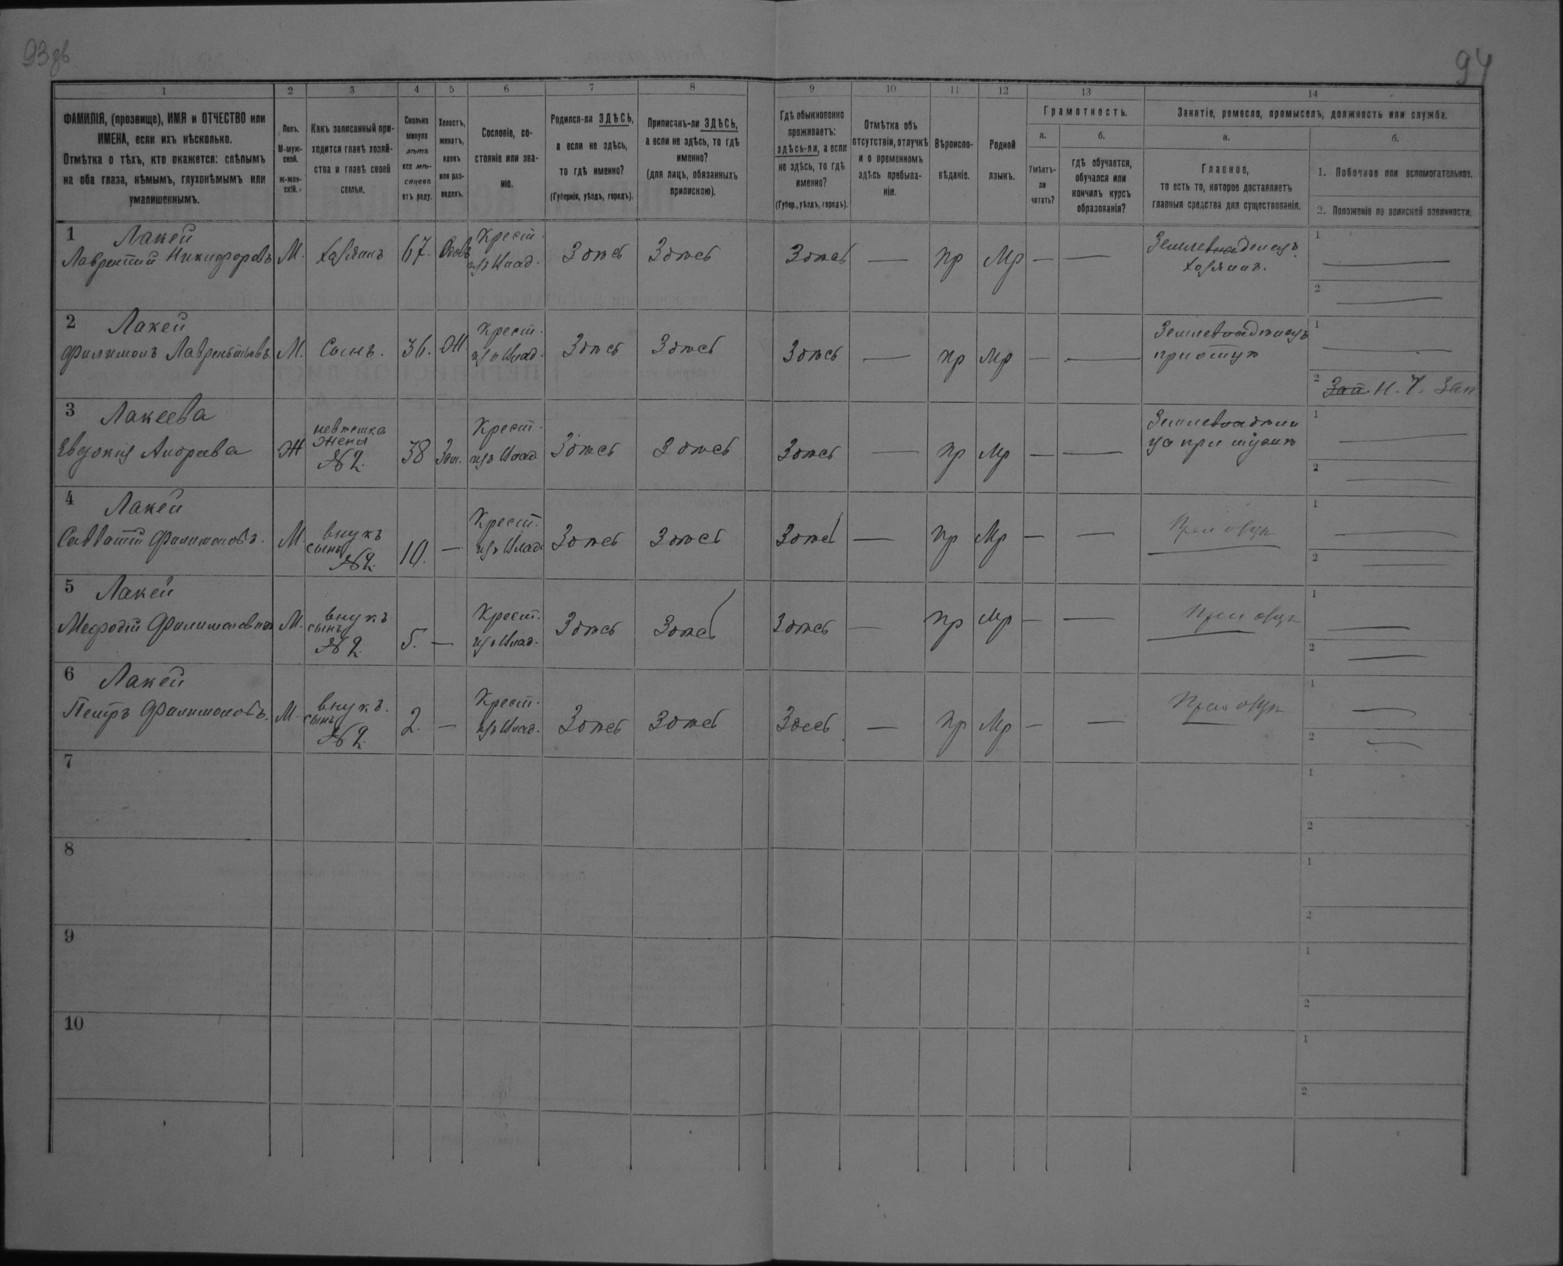 93об
94
1
2
3
4
5
6
7
8
9
10
11
12
13
14
ФАМИЛІЯ, (прозвище), ИМЯ и ОТЧЕСТВО или
ИМЕНА, если ихъ нѣсколько.
Отмѣтка о тѣхъ, кто окажется: слѣпымъ
на оба глаза, нѣмымъ, глухонѣмымъ или
умалишеннымъ.
Полъ.
М-муж-
ской.
Ж-жен-
скій.
Какъ записанный при-
ходится главѣ хозяй-
ства и главѣ своей
семьи.
Сколько
минуло
лѣтъ
или мѣ-
сяцевъ
отъ роду.
Холостъ,
женатъ,
вдовъ
или раз-
веденъ.
Сословіе, со-
стояніе или зва-
ніе.
Родился-ли ЗДѢСЬ,
а если не здѣсь,
то гдѣ именно?
(Губернія, уѣздъ, городъ).
Приписанъ-ли ЗДѢСЬ,
а если не здѣсь, то гдѣ
именно?
(для лицъ, обязанныхъ
припискою).
Гдѣ обыкновенно
проживаетъ:
здѣсь-ли, а если
не здѣсь, то гдѣ
именно?
(Губер., уѣздъ, городъ).
Отмѣтка объ
отсутствіи, отлучкѣ
и о временномъ
здѣсь пребыва-
ніи.
Вѣроиспо-
вѣданіе.
Родной
языкъ.
Грамотность.
а.
Умѣетъ-
ли
читать?
б.
гдѣ обучается,
обучался или
кончилъ курсъ
образованія?
Занятіе, ремесло, промыселъ, должность или служба.
а.
Главное,
то есть то, которое доставляетъ
главныя средства для существованія.
б.
1. Побочное или вспомогательное.
2. Положеніе по воинской повинности.
1 Лакей
Лаврентій Никифоровъ М. Хозяинъ 67. Вдовъ Крест. изъ Влад. Здѣсь Здѣсь Здѣсь — пр Мр — — Землевладелецъ хозяинъ.
1
2
2 Лакей
Филимонъ Лаврентьевъ М. Сынъ. 36. Ж Крест. изъ Влад. Здѣсь Здѣсь Здѣсь — пр Мр — —
1
2 Н. Ч. Зап
3 Лакеева
Евдокія Ж невѣстка жена №2. 38 Зам. Крест. изъ Влад. Здѣсь Здѣсь Здѣсь — пр Мр — —
1
2
4 Лакей
Савватій Филимоновъ. М. внукъ сынъ №2. 10. — Крест. изъ Влад. Здѣсь Здѣсь Здѣсь — пр Мр — —
1
2
5 Лакей
Меѳодій М. внукъ сынъ №2 5. — Крест. изъ Влад. Здѣсь Здѣсь Здѣсь — пр Мр — —
1
2
6 Лакей
Петръ Филимоновъ. М. внукъ. сынъ №2. 2. — Крест. изъ Влад. Здѣсь Здѣсь Здесь — пр Мр — —
1
2
7
1
2
8
1
2
9
1
2
10
1
2